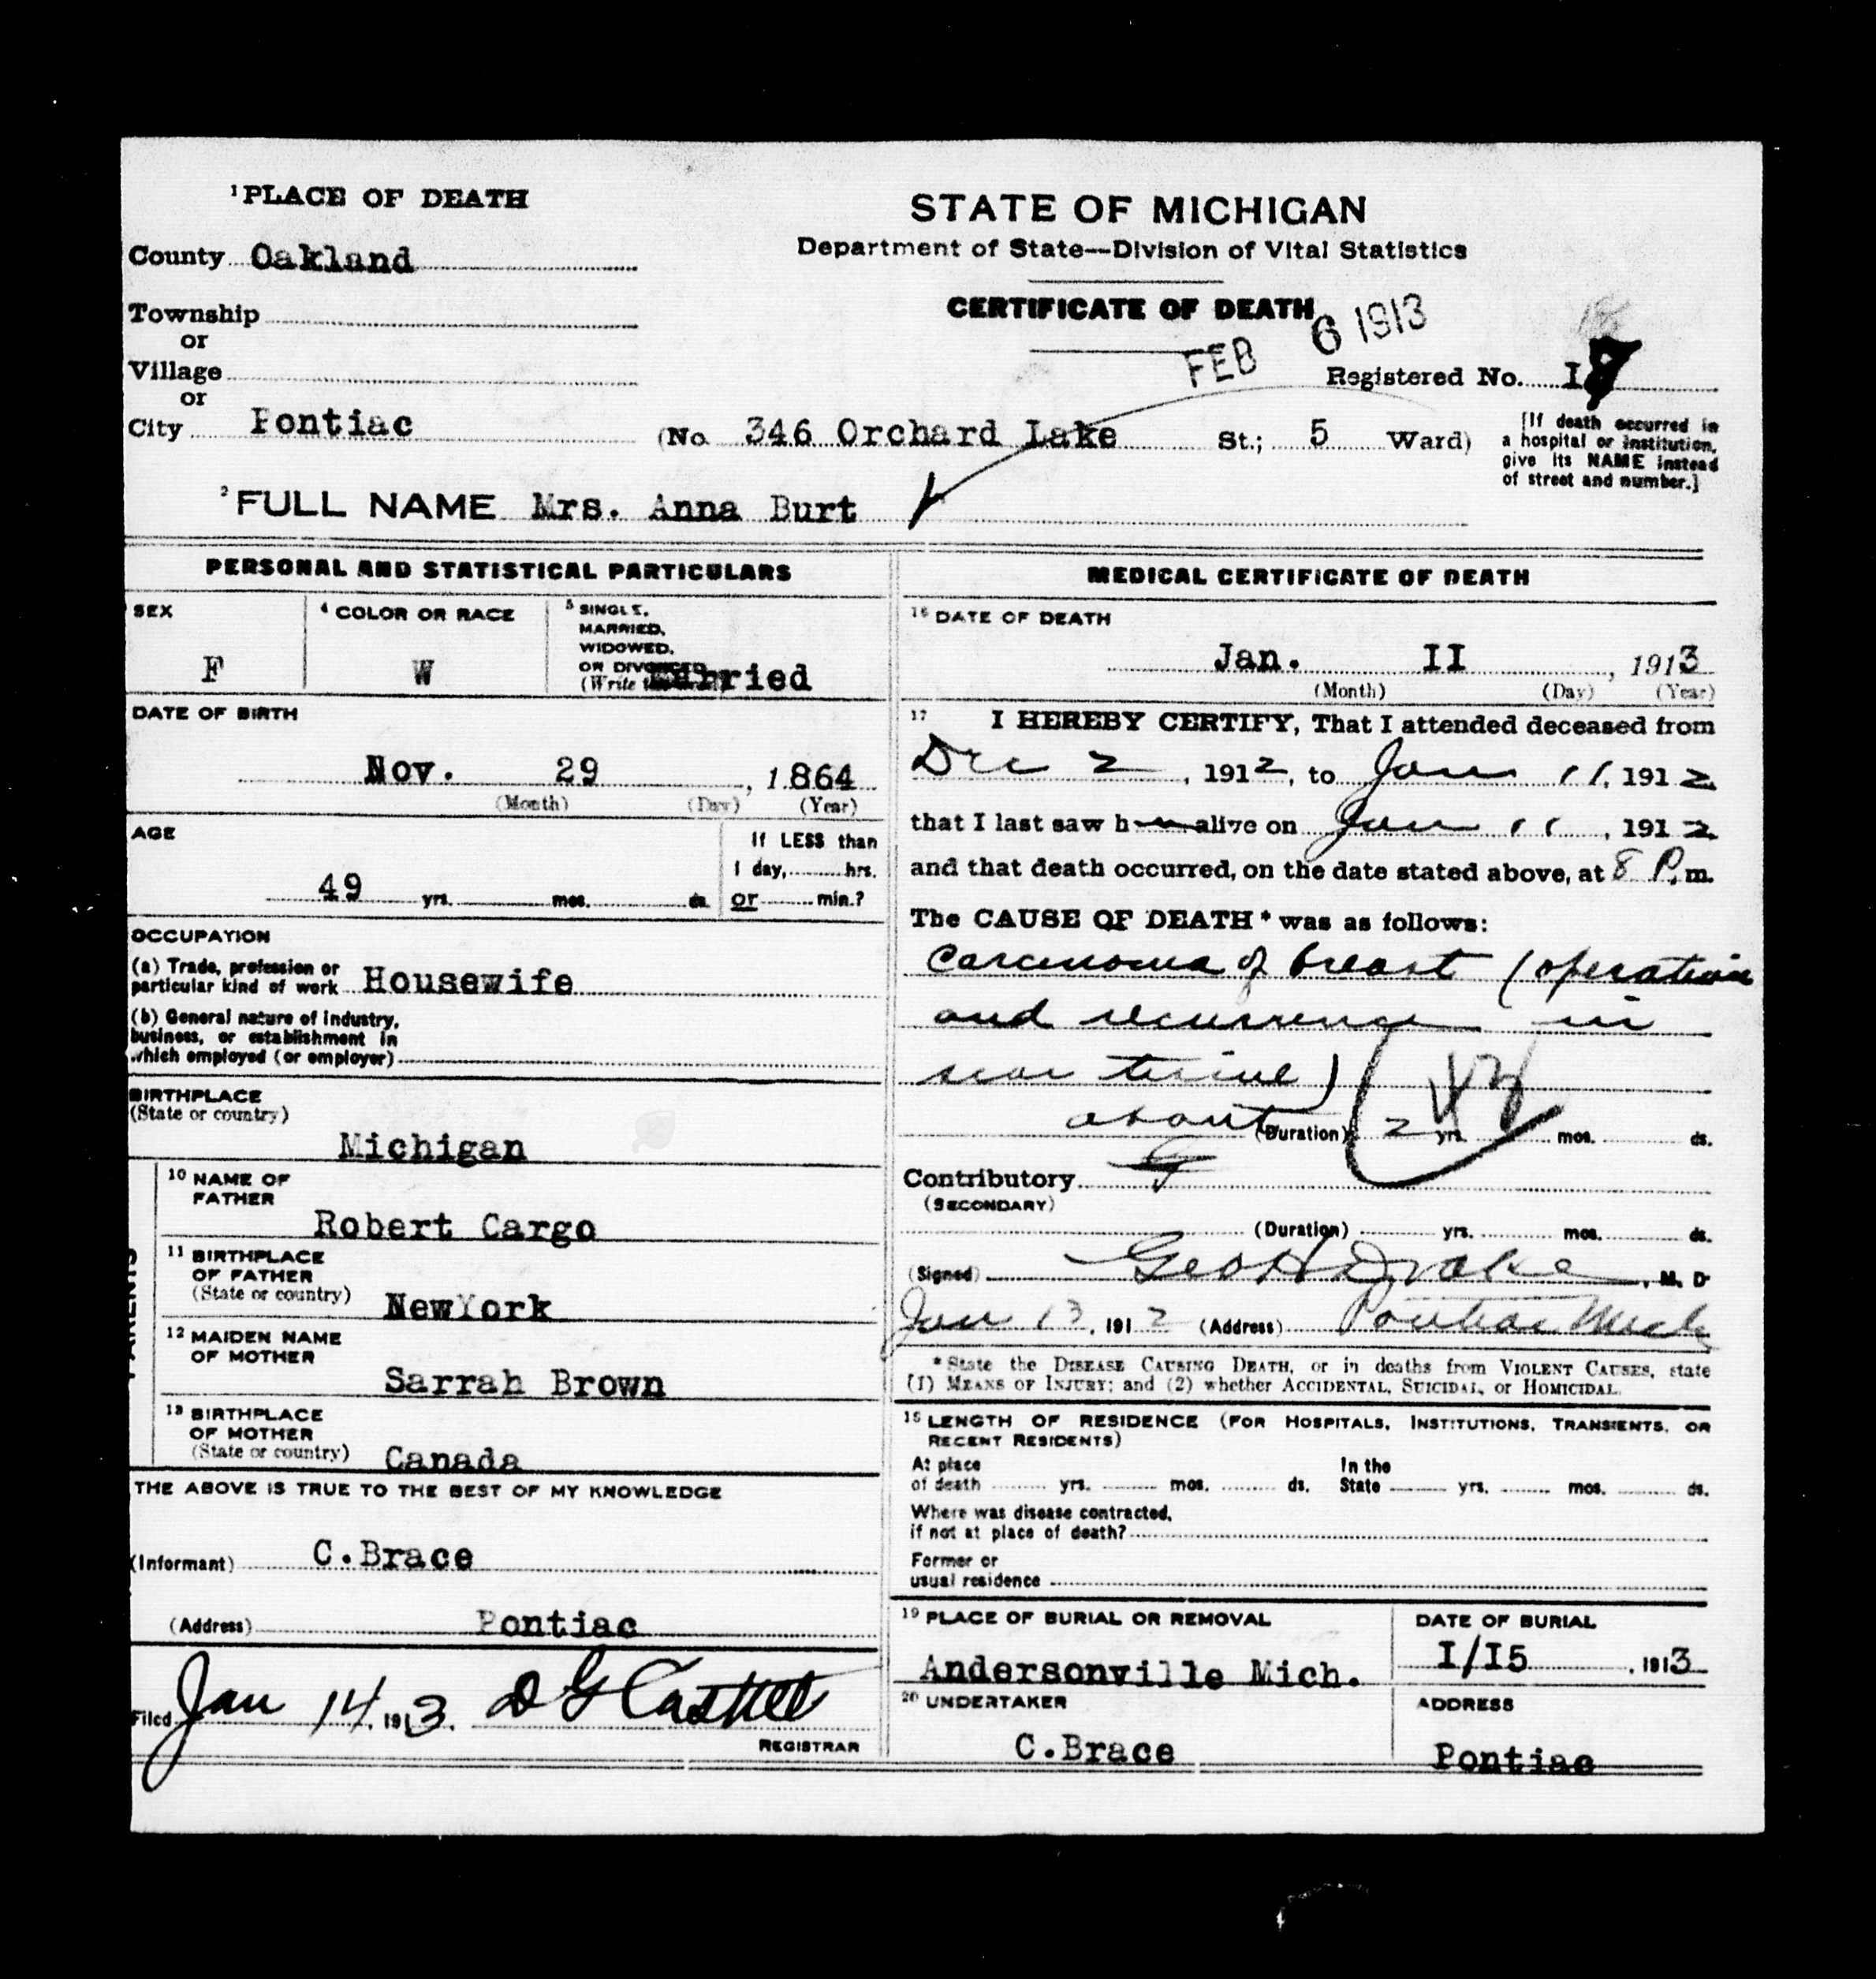 1 PLACE OF DEATH
County Oakland
Township
or
Village
or
City Pontiac
STATE OF MICHIGAN
Department of State—Division of Vital Statistics
CERTIFICATE OF DEATH
FEB 6 1913
Registered No. I
(No. 346 Orchard Lake St.; 5 Ward)
[If death occurred in
a hospital or institution,
give its NAME instead
of street and number.]
2 FULL NAME Mrs. Anna Burt
PERSONAL AND STATISTICAL PARTICULARS
SEX
F
4 COLOR OR RACE
W
5 SINGLE,
MARRIED,
WIDOWED,
OR DIVORCED
(Write
Married
DATE OF BIRTH
Nov. 29, 1864
(Month) (Day) (Year)
AGE
49 yrs. mos. ds.
If LESS than
1 day, hrs.
or min.?
OCCUPATION
(a) Trade, profession or
particular kind of work Housewife
(b) General nature of industry,
business, or establishment in
which employed (or employer)
BIRTHPLACE
(State or country)
Michigan
PARENTS
10 NAME OF
FATHER
Robert Cargo
11 BIRTHPLACE
OF FATHER
(State or country) NewYork
12 MAIDEN NAME
OF MOTHER
Sarrah Brown
13 BIRTHPLACE
OF MOTHER
(State or country) Canada
THE ABOVE IS TRUE TO THE BEST OF MY KNOWLEDGE
(Informant) C.Brace
(Address) Pontiac
Filed Jan 14, 1913. D G Castell
REGISTRAR
MEDICAL CERTIFICATE OF DEATH
16 DATE OF DEATH
Jan. II, 1913
(Month) (Day) (Year)
17 I HEREBY CERTIFY, That I attended deceased from
Dec 2, 1912, to Jan 11, 1912
that I last saw h alive on Jan 11, 1912
and that death occurred, on the date stated above, at 8 P.m.
The CAUSE OF DEATH* was as follows:
Carcinoma of breast (operation
and recurrence in
scar tissue)
about (Duration) 2 yrs. mos. ds.
Contributory
(SECONDARY)
(Duration) yrs. mos. ds.
(Signed) Geo H Drake, M. D.
Jan 13, 1912 (Address) Pontiac Mich
*State the DISEASE CAUSING DEATH, or in deaths from VIOLENT CAUSES, state
(1) MEANS OF INJURY; and (2) whether ACCIDENTAL, SUICIDAL, or HOMICIDAL.
18 LENGTH OF RESIDENCE (FOR HOSPITALS, INSTITUTIONS, TRANSIENTS, OR
RECENT RESIDENTS)
At place
of death yrs. mos. ds.
In the
State yrs. mos. ds.
Where was disease contracted,
if not at place of death?
Former or
usual residence
19 PLACE OF BURIAL OR REMOVAL
Andersonville Mich.
DATE OF BURIAL
I/I5, 1913
20 UNDERTAKER
C.Brace
ADDRESS
Pontiac